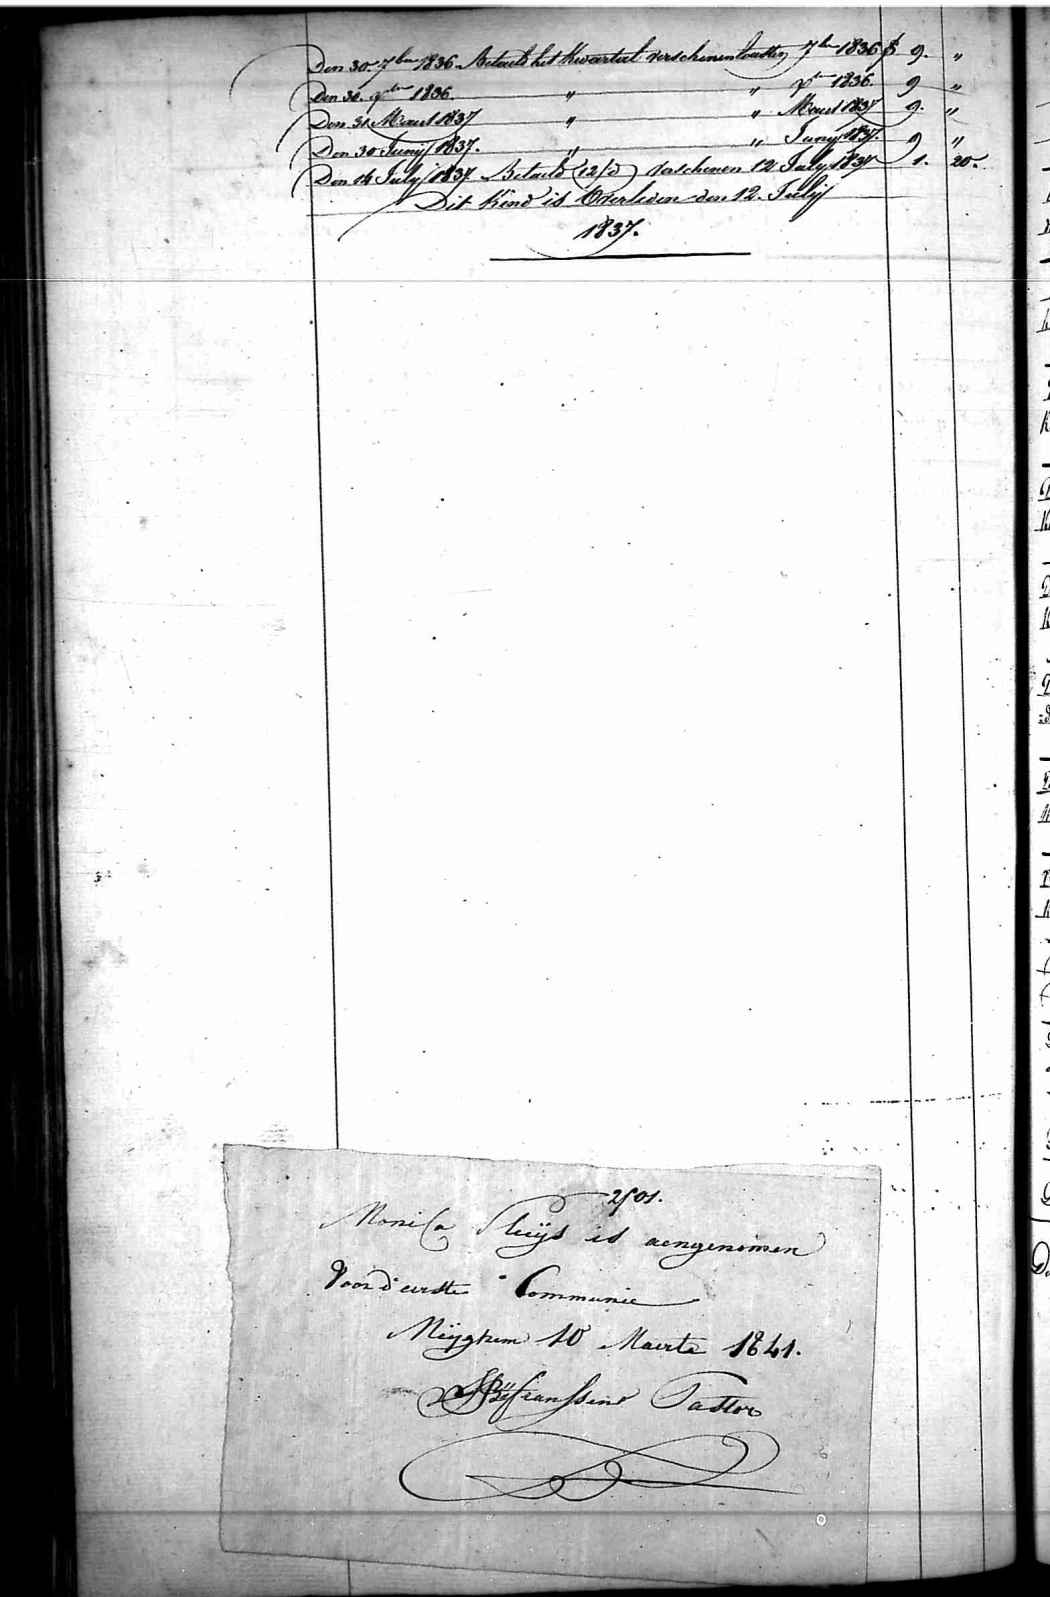 Den 30. 7ber 1836. Betaelt het Kwartiel verschenen 7ber 1836 9. "
Den 31. xber 1836. " " xber 1836. 9 "
Den 31 Maert 1837 " " Maert 1837 9. "
Den 30 Junij 1837. " " Junij 1837. 9 "
Den 14 July 1837 Betaeld (12/d) verschenen 12 July 1837 1. 20.
Dit Kind is Overleden den 12. Julij
1837.
2501.
Monica Sluijs is aengenomen
Voor d'eerste Communie
Meijghem 10 Maerte 1841.
Pastor